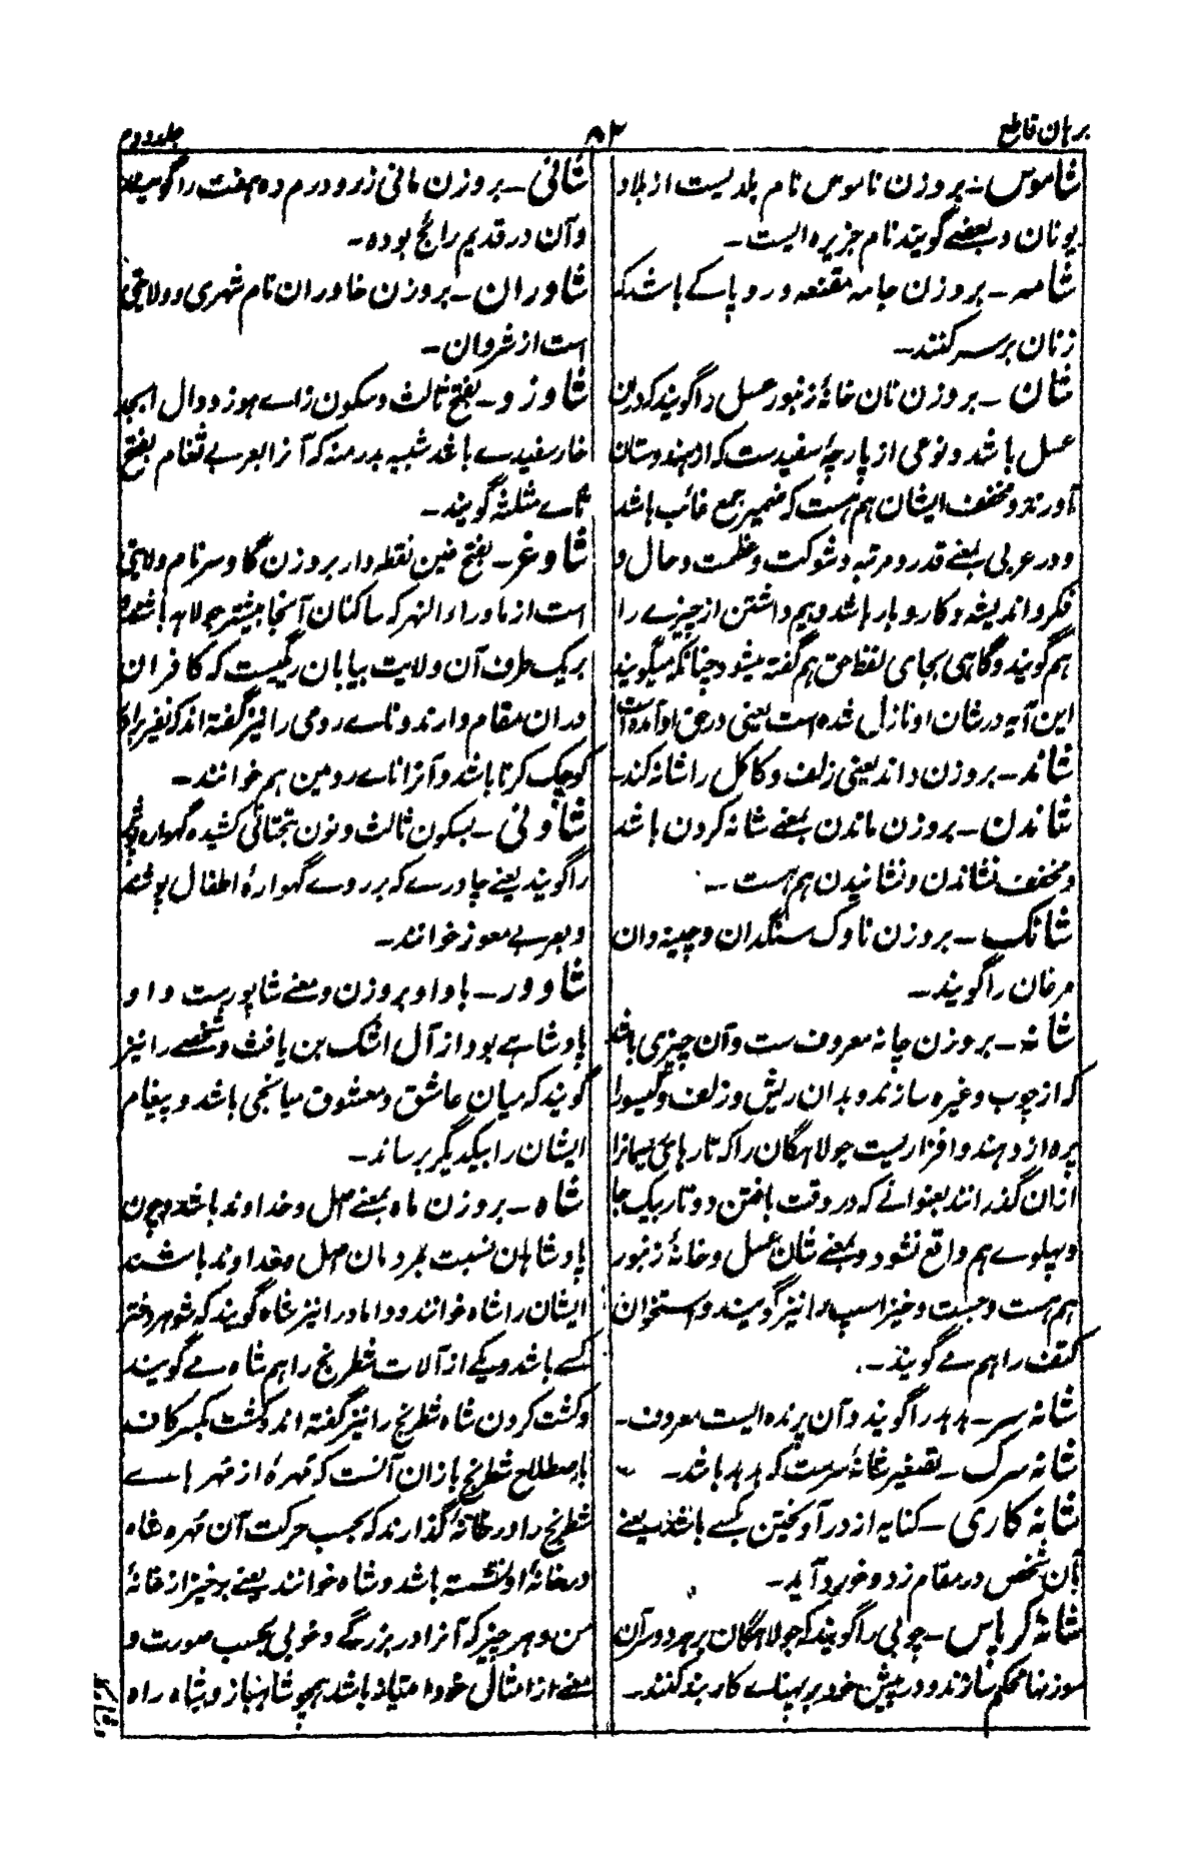 برهان قاطع
۸۲
جلد دوم
شاموس - بروزن ناموس نام بلدیست از بلاد
یونان و بعضے گویند نام جزیره ایست -
شامه - بروزن جامه مقنعه و روپاکے باشد که
زنان بر سر کنند -
شان - بروزن نان خانهٔ زنبور عسل را گویند که دران
عسل باشد و نوعی از پارچهٔ سفیدست که از هندوستان
آورند و مخفف ایشان هم هست که ضمیر جمع غائب باشد
و در عربی بمعنے قدر و مرتبه و شوکت و عظمت و حال و
فکر و اندیشه و کار و بار باشد و بیم داشتن از چیزے را
هم گویند و گاهی بجای لفظ حق هم گفته میشود چنانکه میگویند
این آیه در شان او نازل شده است یعنی در حق او آمده است
شاند - بروزن داند یعنی زلف و کاکل را شانه کند -
شاندن - بروزن ماندن بمعنے شانه کردن باشد
و مخفف نشاندن و نشانیدن هم هست -
شانک - بروزن ناوک سنگدان و چینه دان
مرغان را گویند -
شانه - بروزن چانه معروف ست و آن چیزی باشد
که از چوب و غیره سازند و بدان ریش و زلف و گیسو را
پرداز دهند و افزاریست جولاهگان را که تارهای ریسمان را
ازان گذرانند بعنوانے که در وقت بافتن دو تار یک جا
و پهلوے هم واقع نشود و بمعنے شان عسل و خانهٔ زنبور
هم هست و جست و خیز اسپ را نیز گویند و استخوان
کتف را هم مے گویند -
شانه سر - هدهد را گویند و آن پرنده ایست معروف -
شانه سرک - تصغیر شانهٔ سرست که هدهد باشد -
شانه کاری - کنایه از در آویختن بکسے باشد یعنے
بآن شخص در مقام زد و خورد آید -
شانه کرپاس - چوبی را گویند که جولاهگان بر هر دو سر آن
سوزنها محکم سازند و در پیش خود بر پهناے کار بند کنند -
شانی - بروزن مانی زر و درم ده هفت را گویند
و آن در قدیم رائج بوده -
شاوران - بروزن خاوران نام شهری و ولایتی
است از شروان -
شاوزو - بفتح ثالث و سکون زاے هوز و دال ابجد
خار سفیدے باشد شبیه بدرمنه که آنرا بعربے ثغام بفتح
ثاے مثلثه گویند -
شاوغر - بفتح غین نقطه دار بروزن گاوسر نام ولایتی
است از ماوراء النهر که ساکنان آنجا بیشتر جولاه باشند و
بر یک طرف آن ولایت بیابان ریگیست که کافران
دران مقام دارند و ناے رومی را نیز گفته اند که نفیر برادر
کوچک کرنا باشد و آنرا ناے رومین هم خوانند -
شاونی - بسکون ثالث و نون بتحتانی کشیده گهواره پوش
را گویند یعنے چادرے که بر روے گهوارهٔ اطفال پوشند
و بعربے معوز خوانند -
شاوور - با واو بروزن و معنے شاپورست و او
پادشاهے بود از آل اشک بن یافث و شخصے را نیز
گویند که میان عاشق و معشوق میانجی باشد و پیغام
ایشان را بیکدیگر برساند -
شاه - بروزن ماه بمعنے اصل و خداوند باشد و چون
پادشاهان نسبت بمردمان اصل و خداوند باشند
ایشان را شاه خوانند و داماد را نیز شاه گویند که شوهر دختر
کسے باشد و یکے از آلات شطرنج را هم شاه مے گویند
و کشت کردن شاه شطرنج را نیز گفته اند و کشت بکسر کاف
باصطلاح شطرنج بازان آنست که مُهرهٔ از مُهرهاے
شطرنج را در خانهٔ گذارند که بحسب حرکت آن مُهره شاه
در خانهٔ او نشسته باشد و شاه خوانند یعنے برخیز از خانهٔ
من و هر چیز که آنرا در بزرگے و خوبی بحسب صورت و
معنے از امثال خود امتیاز باشد همچو شاهباز و شاه راه